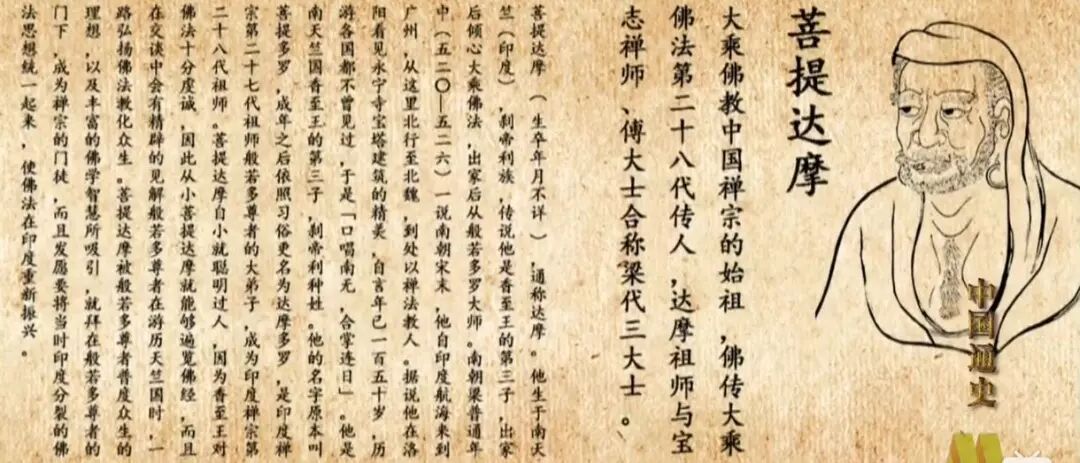 菩提达摩
大乘佛教中国禅宗的始祖,佛传大乘
佛法第二十八代传人,达摩祖师与宝
志禅师、傅大士合称梁代三大士。
菩提达摩(生卒年月不详),通称达摩。他生于南天
竺(印度),刹帝利族,传说他是香至王的第三子,出家
后倾心大乘佛法,出家后从般若多罗大师。南朝梁普通年
中(五二〇—五二六)一说南朝宋末,他自印度航海来到
广州,从这里北行至北魏,到处以禅法教人。据说他在洛
阳看见永宁寺宝塔建筑的精美,自言年已一百五十岁,历
游各国都不曾见过,于是「口唱南无,合掌连日」。他是
南天竺国香至王的第三子,刹帝利种姓。他的名字原本叫
菩提多罗,成年之后依照习俗更名为达摩多罗,是印度禅
宗第二十七代祖师般若多尊者的大弟子,成为印度禅宗第
二十八代祖师。菩提达摩自小就聪明过人,因为香至王对
佛法十分虔诚,因此从小菩提达摩就能够遍览佛经,而且
在交谈中会有精辟的见解般若多尊者在游历天竺国时,一
路弘扬佛法教化众生。菩提达摩被般若多尊者普度众生的
理想,以及丰富的佛学智慧所吸引,就拜在般若多尊者的
门下,成为禅宗的门徒,而且发愿要将当时印度分裂的佛
法思想统一起来,使佛法在印度重新振兴。
中国通史